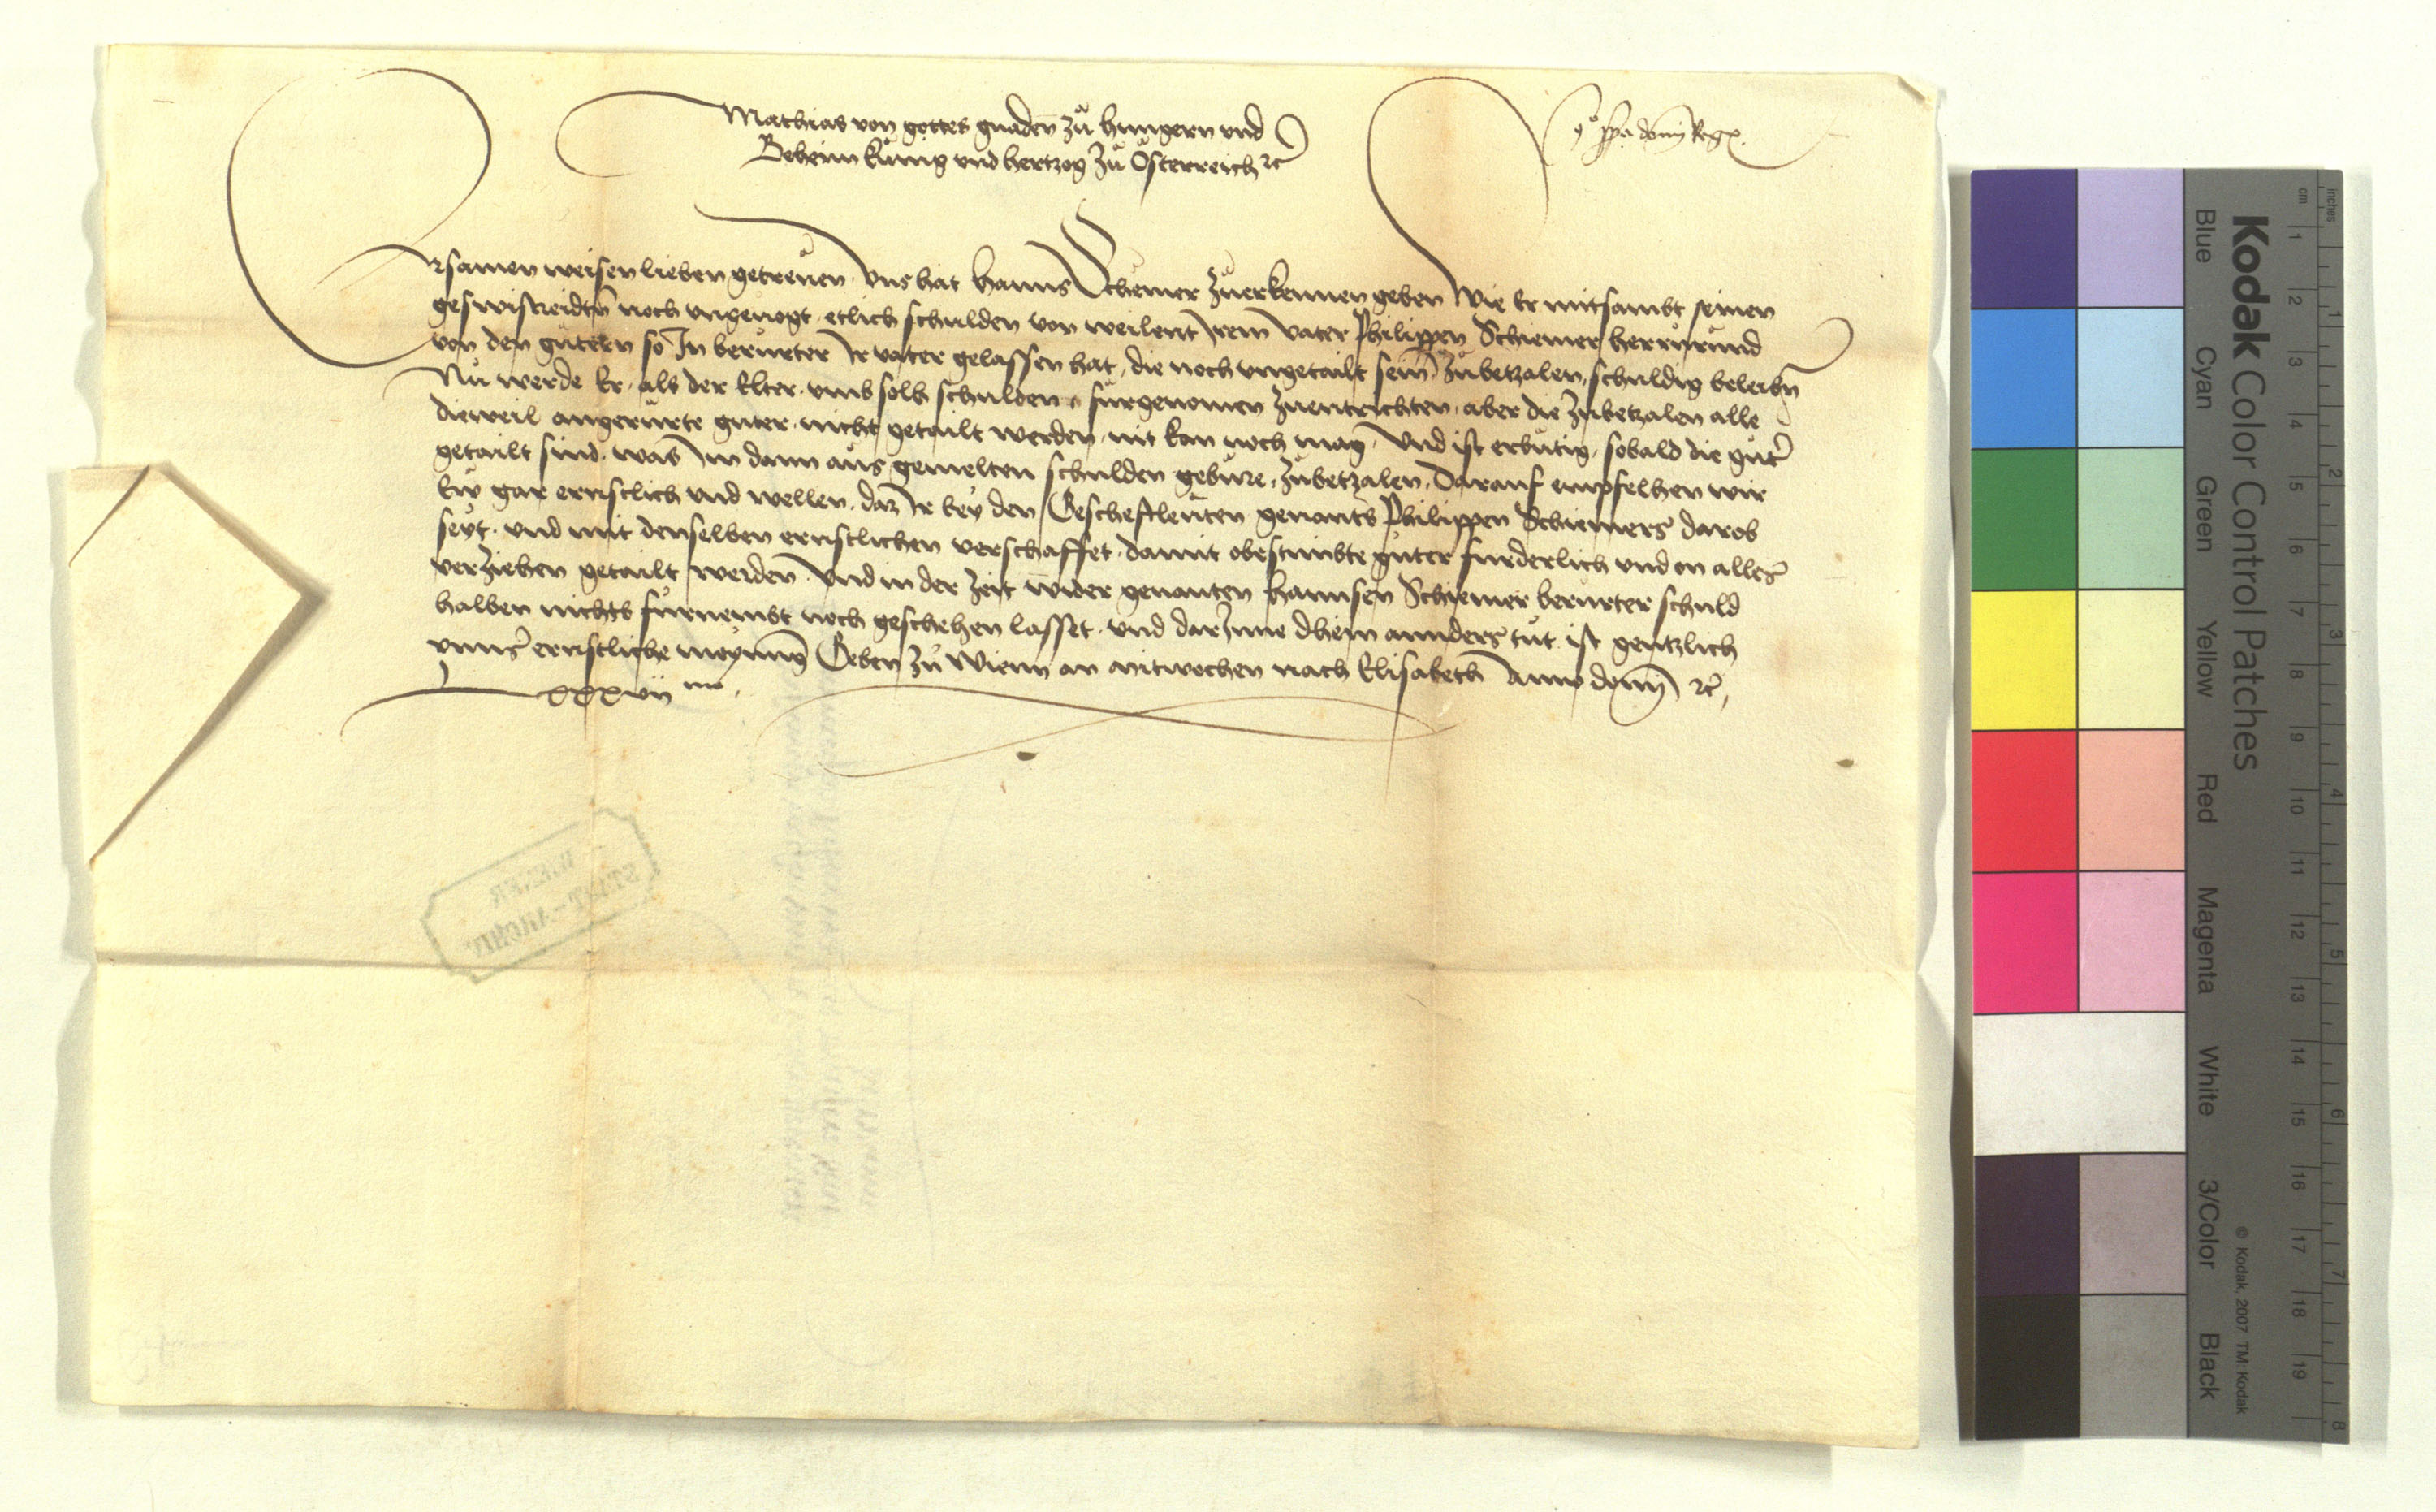 Mathias von gottes gnaden zů hungern vnd
Beheim kůnig vnd hertzog zů Osterreich ꝛc
domini Regis
Ersamen weisen lieben getreuen. Vns hat Hanns Schiemer zuerkennen geben Wie Er mitsambt seinen
geswistreidten noch vngeuogt etlich schulden von weilent Irem vater Philippen Schiemer herrurund
von den gůtern so In berurter Ir vater gelassen hat, die noch vngetailt sein zubetzalen, schuldig beleibn
Nů werde Er, als der Elter, vmb solh schulden furgenomen zuentrichten, aber die zubetzalen alle
dieweil angerurte guter nicht getailt werden, nit kan noch mag. Vnd ist erbutig, sobald die guter
getailt sind, was Im dann aus gemelten schulden gebure, zubetzalen. Darauf empfelhen wir
Ew gar ernstlich vnd wellen, daz Ir bey den Gescheftleuten genants Philippen Schiemers darob
seyt, vnd mit denselben ernstlichen verschaffet, damit obestimbte guter furderlich vnd on alles
verziehen getailt werden. Vnd in der zeit wider genanten Hannsen Schiemer berurter schuld
halben nichts furnembt noch geschehen lasset, vnd darInne dhein annders tut, ist gentzlich
vnnser ernstliche meynung Geben zů Wienn an mitwochen nach Elisabeth Anno domini ꝛc
lxxxvii mo.
WIENER
STADT-ARCHIV
Kodak Color Control Patches
Blue Cyan Green Yellow Red Magenta White 3/Color Black
© Kodak, 2007 TM: Kodak
cm 1 2 3 4 5 6 7 8 9 10 11 12 13 14 15 16 17 18 19
inches 1 2 3 4 5 6 7 8